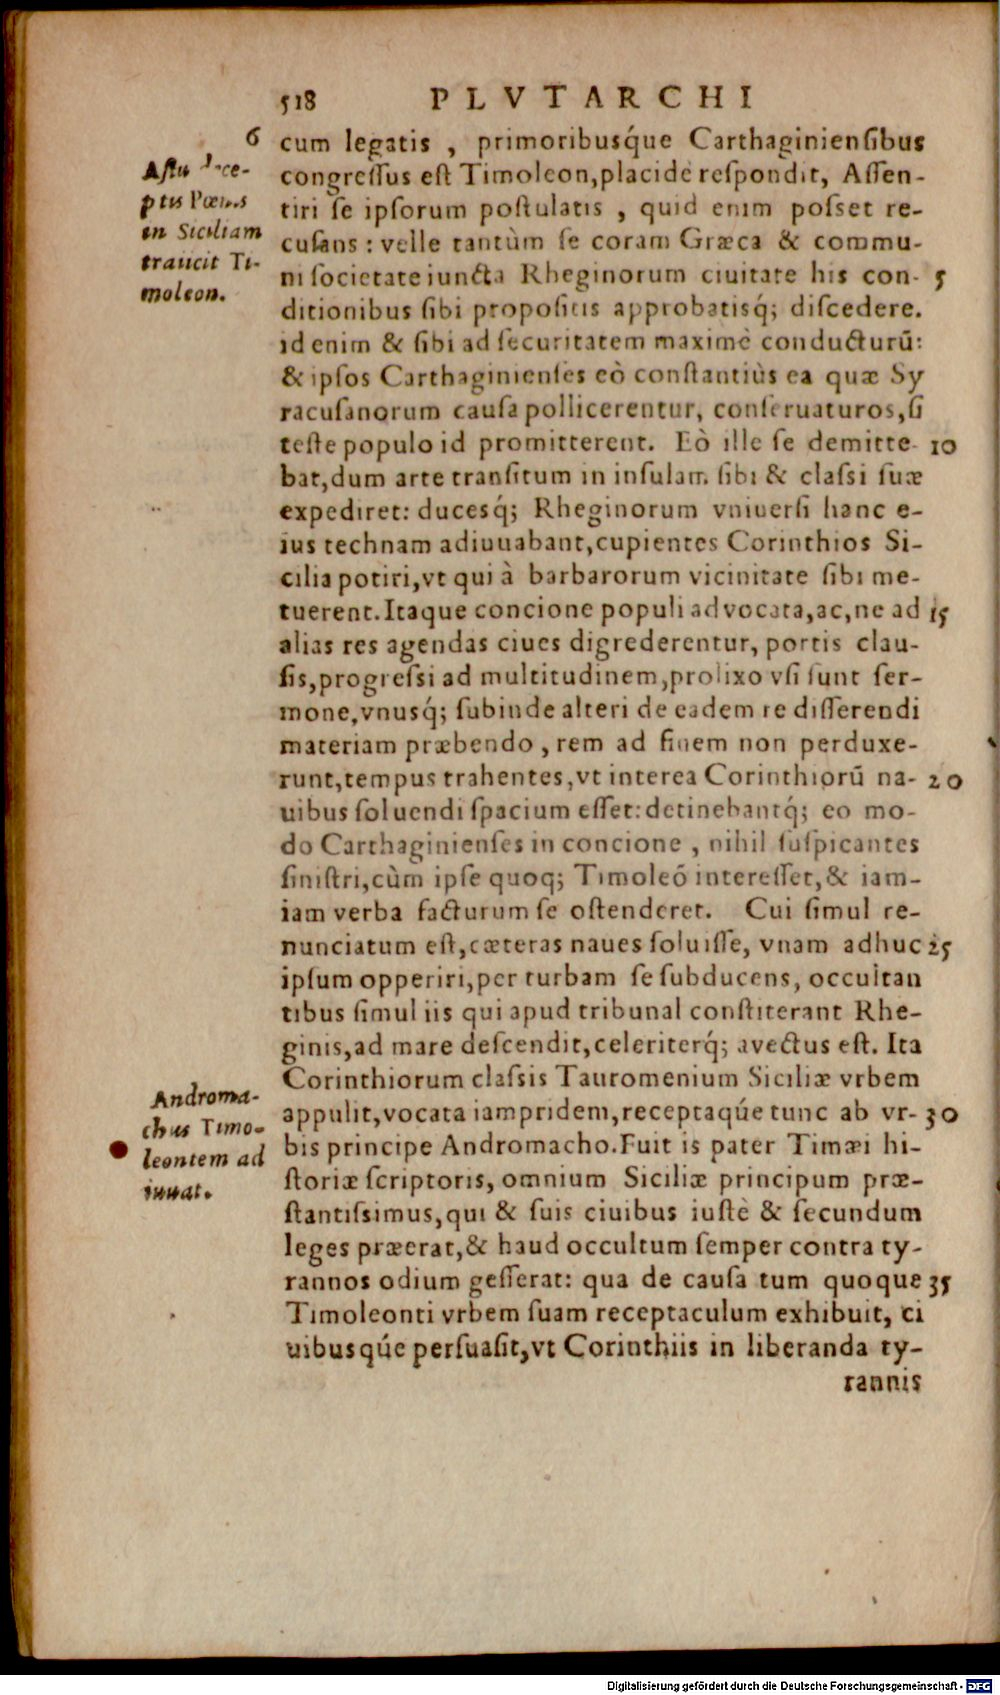 518 PLVTARCHI
6
Astu dece-
ptis Pœnis
in Siciliam
traiicit Ti-
moleon.
cum legatis , primoribusq́ue Carthaginiensibus
congressus est Timoleon,placidè respondit, Assen-
tiri se ipsorum postulatis , quid enim posset re-
cusans : velle tantùm se coram Græca & commu-
ni societate iuncta Rheginorum ciuitate his con- 5
ditionibus sibi propositis approbatisq́; discedere.
id enim & sibi ad securitatem maximè conducturū:
& ipsos Carthaginienses eò constantiùs ea quæ Sy
racusanorum causa pollicerentur, conseruaturos,si
teste populo id promitterent. Eò ille se demitte- 10
bat,dum arte transitum in insulam sibi & classi suæ
expediret: ducesq́; Rheginorum vniuersi hanc e-
ius technam adiuuabant,cupientes Corinthios Si-
cilia potiri,vt qui à barbarorum vicinitate sibi me-
tuerent.Itaque concione populi advocata,ac,ne ad 15
alias res agendas ciues digrederentur, portis clau-
sis,progressi ad multitudinem,prolixo vsi sunt ser-
mone,vnusq́; subinde alteri de eadem re disserendi
materiam præbendo , rem ad finem non perduxe-
runt,tempus trahentes,vt interea Corinthiorū na- 20
uibus soluendi spacium esset: detinebantq́; eo mo-
do Carthaginienses in concione , nihil suspicantes
sinistri,cùm ipse quoq; Timoleō interesset,& iam-
iam verba facturum se ostenderet. Cui simul re-
nunciatum est,cæteras naues soluisse, vnam adhuc 25
ipsum opperiri,per turbam se subducens, occultan
tibus simul iis qui apud tribunal constiterant Rhe-
ginis,ad mare descendit,celeriterq́; avectus est. Ita
Corinthiorum classis Tauromenium Siciliæ vrbem
appulit,vocata iampridem,receptaq́ue tunc ab vr- 30
bis principe Andromacho.Fuit is pater Timæi hi-
storiæ scriptoris, omnium Siciliæ principum præ-
stantissimus,qui & suis ciuibus iustè & secundum
leges præerat,& haud occultum semper contra ty-
rannos odium gesserat: qua de causa tum quoque 35
Timoleonti vrbem suam receptaculum exhibuit, ci
uibusq́ue persuasit,vt Corinthiis in liberanda ty-
rannis
Androma-
chus Timo-
leontem ad
iuuat.
Digitalisierung gefördert durch die Deutsche Forschungsgemeinschaft - DFG